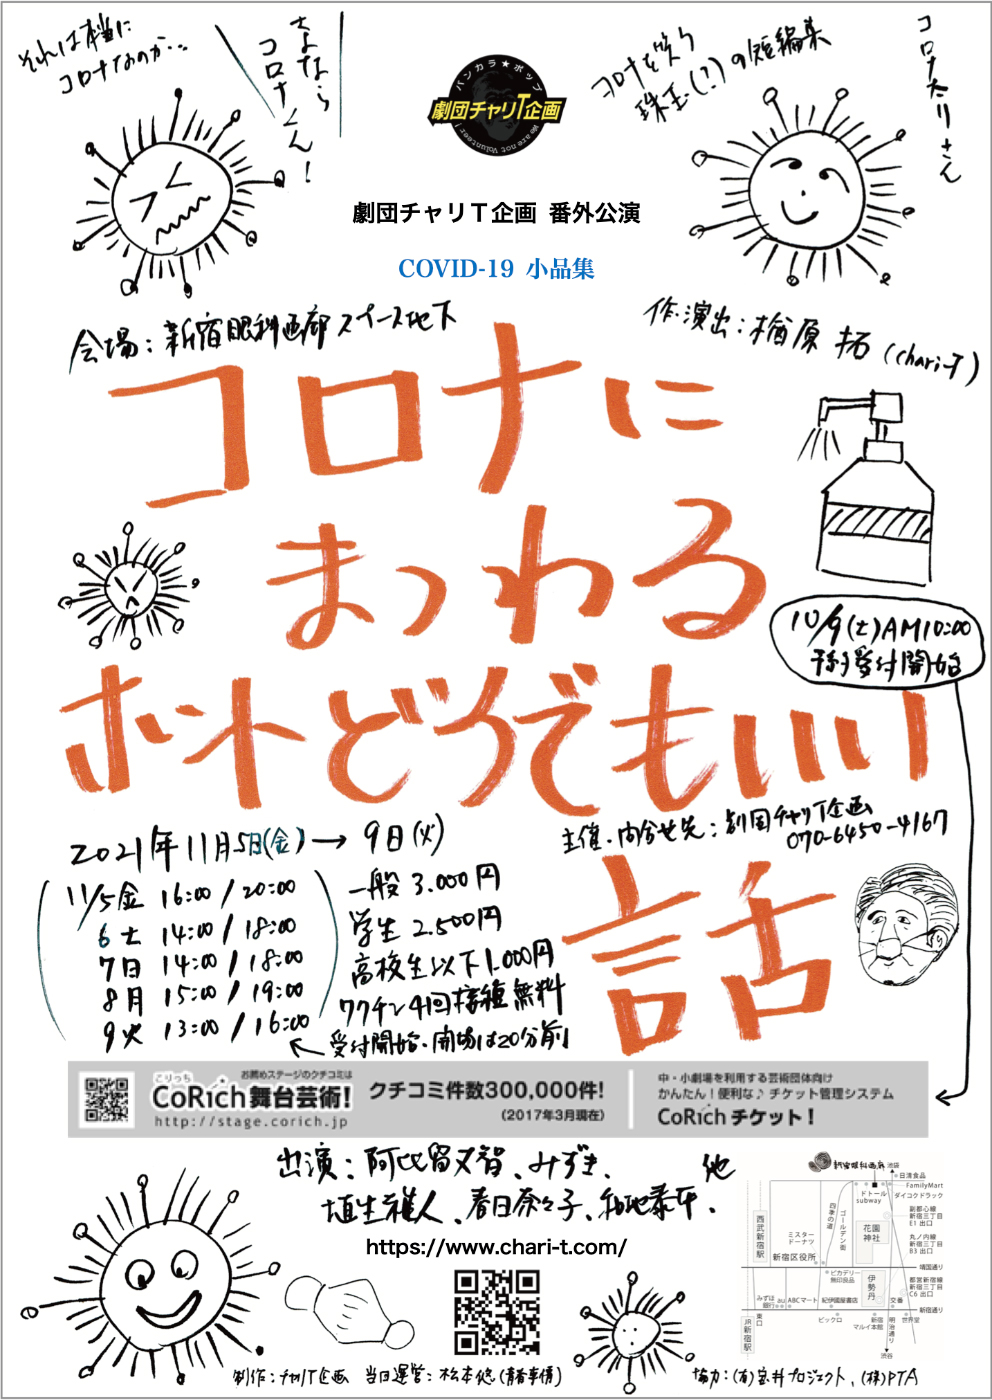 それは本当に
コロナなのか…
さよなら
コロナくん!
バンカラ★ポップ
劇団チャリT企画
We are not Volunteer!
コロナを笑う
珠玉(?)の短編集
コロナだりさん
劇団チャリT企画 番外公演
COVID-19 小品集
会場:新宿眼科画廊 スペース地下
作・演出:楢原 拓 (chari-T)
コロナに
まつわる
ホントどうでもいい
話
10/9(土)AM10:00
予約受付開始
2021年11月5日(金)→9日(火)
主催・問合せ先:劇団チャリT企画
070-6450-4167
11/5金 16:00/20:00
6土 14:00/18:00
7日 14:00/18:00
8月 15:00/19:00
9火 13:00/16:00
一般 3.000円
学生 2.500円
高校生以下1.000円
ワクチン4回接種無料
受付開始・開場は20分前
こりっち
お薦めステージのクチコミは
CoRich舞台芸術!
http://stage.corich.jp
クチコミ件数300,000件!
(2017年3月現在)
中・小劇場を利用する芸術団体向け
かんたん!便利な♪チケット管理システム
CoRichチケット!
出演:阿比留又智、みずき、
埴生雅人、春日奈々子、和地泰平、他
https://www.chari-t.com/
新宿眼科画廊
池袋
日清食品
FamilyMart
ドトール
subway
ダイコクドラック
副都心線
新宿三丁目
E1 出口
四季の道
ゴールデン街
花園
神社
西武新宿駅
ミスター
ドーナツ
新宿区役所
丸ノ内線
新宿三丁目
B3 出口
靖国通り
ピカデリー
無印良品
伊勢丹
都営新宿線
新宿三丁目
C6 出口
みずほ
銀行
au
ABCマート
紀伊國屋書店
交番
新宿通り
JR新宿駅
東口
ビックロ
新宿
マルイ本館
明治通り
世界堂
渋谷
制作:チャリT企画 当日運営:松本悠(青春事情)
協力:(有)宝井プロジェクト、(株)PTA